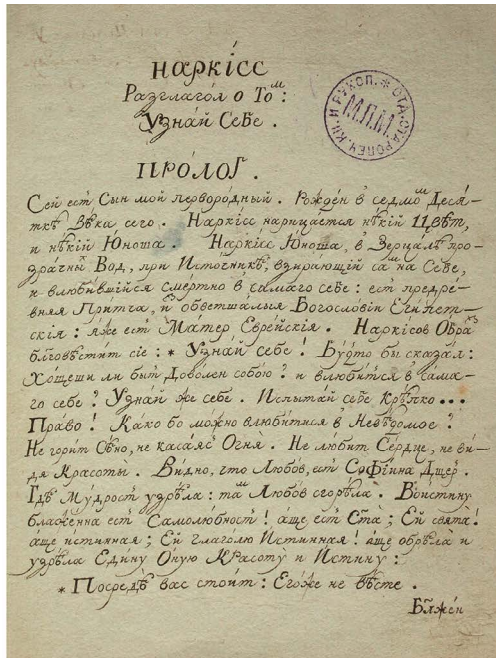 НАРКІ́СС
Разглаго́л о То́м:
Узна́й Себе́.
И РУКОП. * ОТД. СТАРОПЕЧ. КН.
М.П.М.
ПРО́ЛОГ.
Сей ест Сын мой первородный. Рожде́н в седмо́м Деся́-
ткѣ Вѣка сего. Нарки́сс нарица́ется нѣкій Цвѣт,
и нѣкій Юноша. Нарки́сс Юноша, в Зерцалѣ про-
зрачных Вод, при Исто́чникѣ, взира́ющій сам на Себе,
и влюби́вшійся смертно в самаго себе: ест предре́-
вняя Притча, из обветшалыя Богословіи Егѵпет-
скія: яже ест Матер Еврейскія. Наркісов Образ
бл҃говѣстит сіе: * Узна́й себе! Бу́дто бы сказал:
Хо́щеши ли быт Дово́лен собою? и влюби́тся в сама-
го себе? Узнай же себе. Испытай себе Крѣпко...
Право! Како бо мо́жно влюбитися в Невѣдомое?
Не горит Сѣно, не касаяс Огня. Не любит Сердце, не ви-
дя Красоты. Видно, что Любов, ест Софіина Дщер.
Гдѣ Мудрост узрѣла: там Любов сгорѣла. Воистину
блаженна ест Самолюбност! аще ест Ст҃а; Ей свята!
аще истинная; Ей глаголю Истинная! аще обрѣла и
узрѣла Едину Оную Красоту и Истину:
* Посредѣ вас стоит: Егоже не вѣсте.
Бл҃же́н